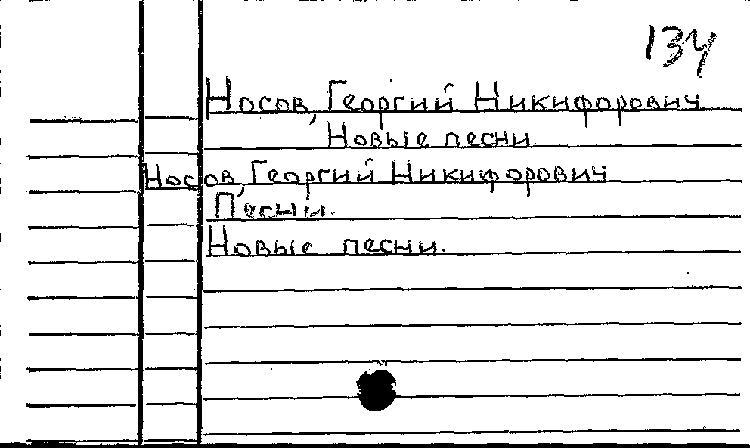 134
Носов, Георгий Никифорович
Новые песни
Носов, Георгий Никифорович
Песни.
Новые песни.